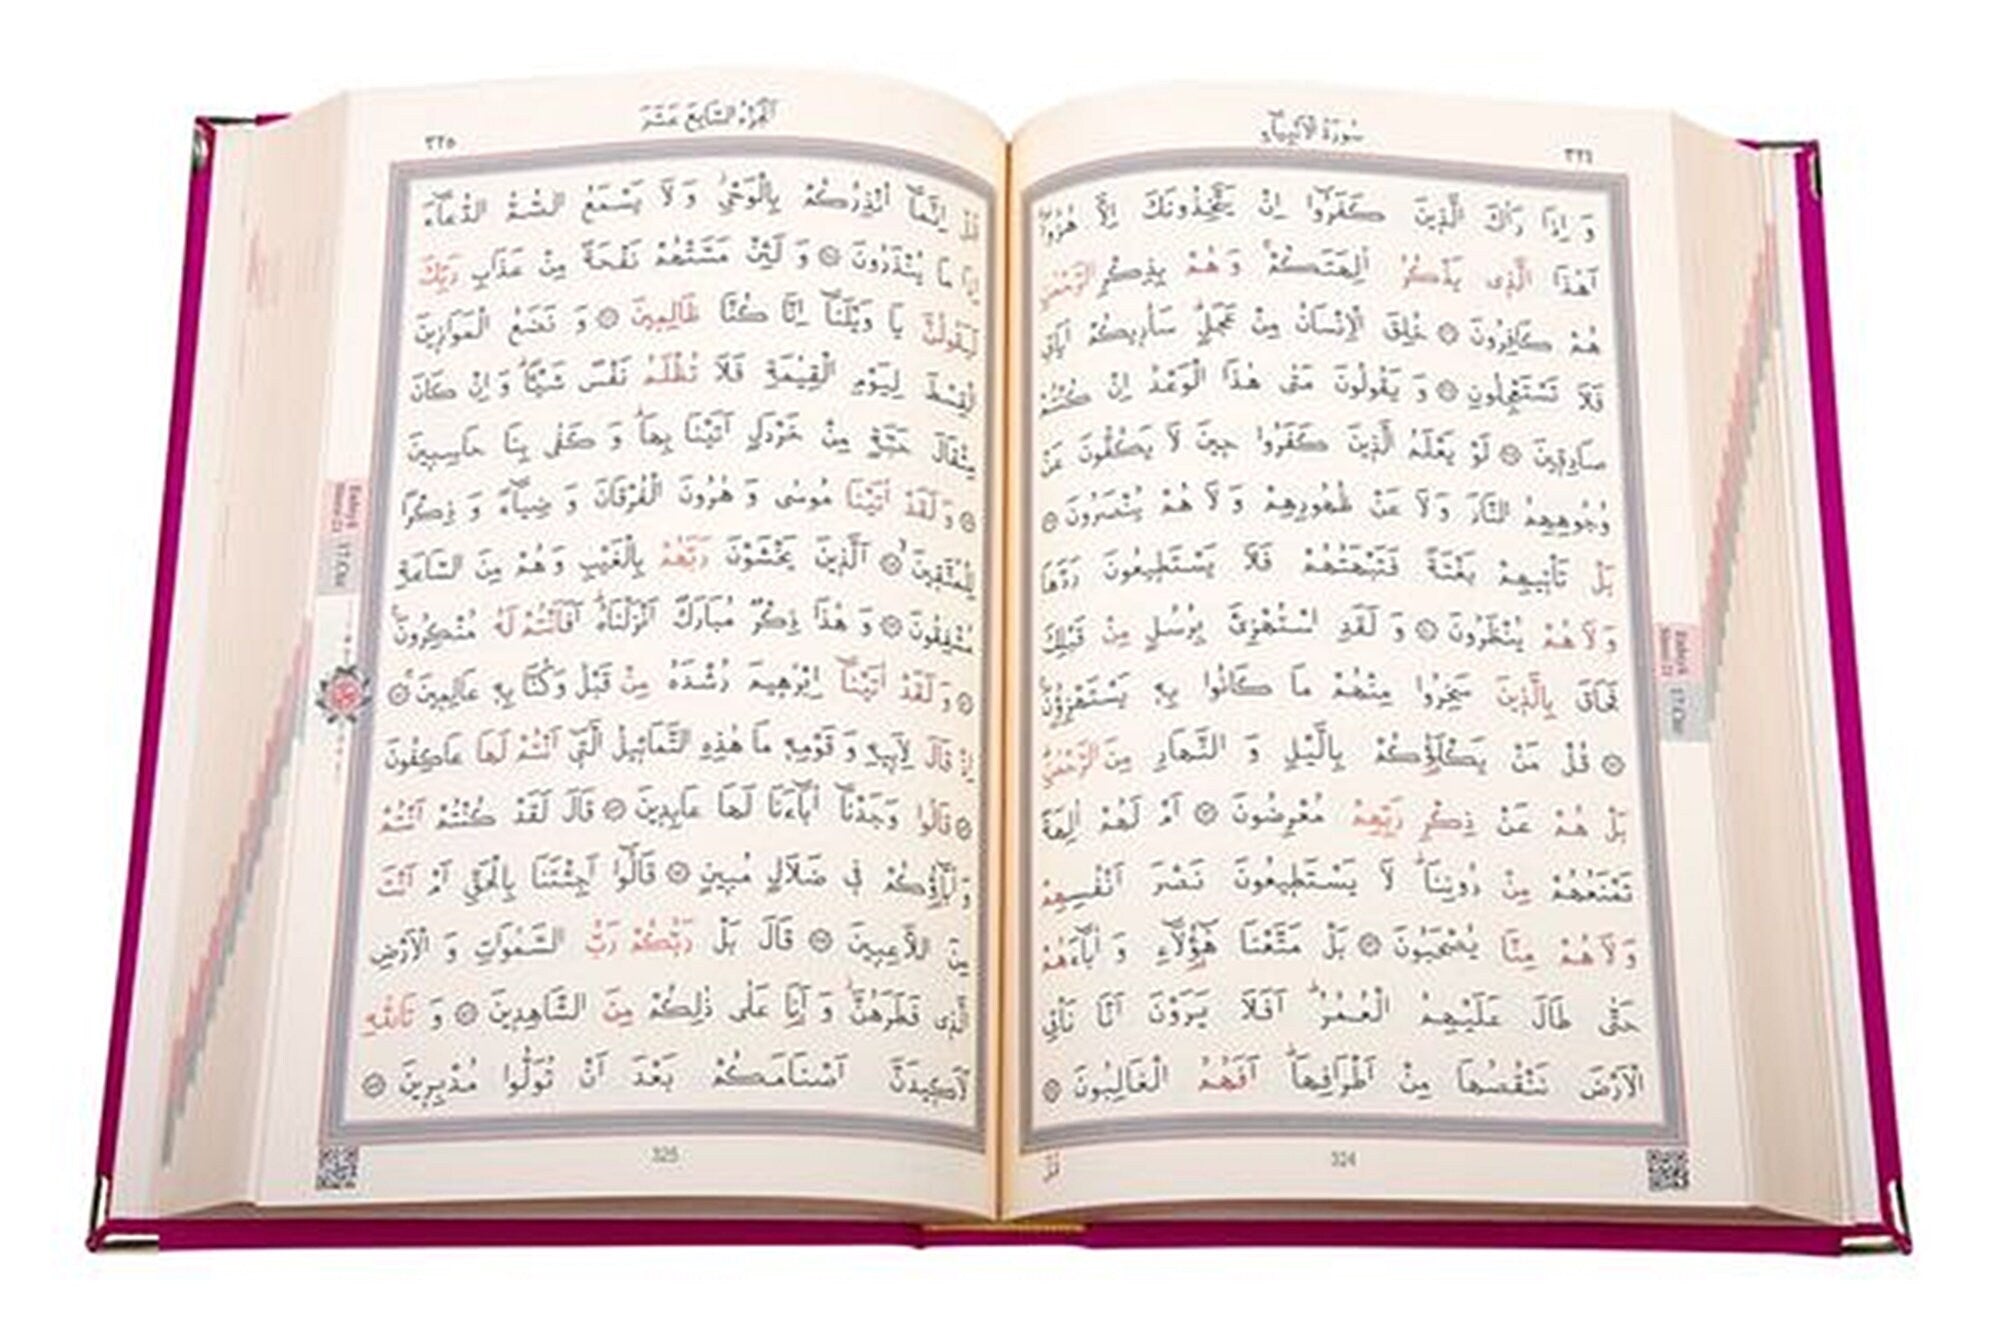 سُورَةُ الْاَنْبِيَاءِ
وَ اِذَا رَاٰكَ الَّذِينَ كَفَرُوا اِنْ يَتَّخِذُونَكَ اِلَّا هُزُوًا
اَهٰذَا الَّذِى يَذْكُرُ اٰلِهَتَكُمْ وَ هُمْ بِذِكْرِ الرَّحْمٰنِ
هُمْ كَافِرُونَ ۝ خُلِقَ الْاِنْسَانُ مِنْ عَجَلٍ سَاُرِيكُمْ اٰيَاتِى
فَلَا تَسْتَعْجِلُونِ ۝ وَ يَقُولُونَ مَتٰى هٰذَا الْوَعْدُ اِنْ كُنْتُمْ
صَادِقِينَ ۝ لَوْ يَعْلَمُ الَّذِينَ كَفَرُوا حِينَ لَا يَكُفُّونَ عَنْ
وُجُوهِهِمُ النَّارَ وَ لَا عَنْ ظُهُورِهِمْ وَ لَا هُمْ يُنْصَرُونَ ۝
بَلْ تَاْتِيهِمْ بَغْتَةً فَتَبْهَتُهُمْ فَلَا يَسْتَطِيعُونَ رَدَّهَا
وَ لَا هُمْ يُنْظَرُونَ ۝ وَ لَقَدِ اسْتُهْزِئَ بِرُسُلٍ مِنْ قَبْلِكَ
فَحَاقَ بِالَّذِينَ سَخِرُوا مِنْهُمْ مَا كَانُوا بِهِ يَسْتَهْزِؤُنَ
۝ قُلْ مَنْ يَكْلَؤُكُمْ بِالَّيْلِ وَ النَّهَارِ مِنَ الرَّحْمٰنِ
بَلْ هُمْ عَنْ ذِكْرِ رَبِّهِمْ مُعْرِضُونَ ۝ اَمْ لَهُمْ اٰلِهَةٌ
تَمْنَعُهُمْ مِنْ دُونِنَا لَا يَسْتَطِيعُونَ نَصْرَ اَنْفُسِهِمْ
وَ لَا هُمْ مِنَّا يُصْحَبُونَ ۝ بَلْ مَتَّعْنَا هٰؤُلَاءِ وَ اٰبَاءَهُمْ
حَتّٰى طَالَ عَلَيْهِمُ الْعُمُرُ اَفَلَا يَرَوْنَ اَنَّا نَاْتِى
الْاَرْضَ نَنْقُصُهَا مِنْ اَطْرَافِهَا اَفَهُمُ الْغَالِبُونَ ۝
324
قُلْ
اَلْجُزْءُ السَّابِعَ عَشَرَ
٣٢٥
قُلْ اِنَّمَا اُنْذِرُكُمْ بِالْوَحْىِ وَ لَا يَسْمَعُ الصُّمُّ الدُّعَاءَ
اِذَا مَا يُنْذَرُونَ ۝ وَ لَئِنْ مَسَّتْهُمْ نَفْحَةٌ مِنْ عَذَابِ رَبِّكَ
لَيَقُولُنَّ يَا وَيْلَنَا اِنَّا كُنَّا ظَالِمِينَ ۝ وَ نَضَعُ الْمَوَازِينَ
الْقِسْطَ لِيَوْمِ الْقِيٰمَةِ فَلَا تُظْلَمُ نَفْسٌ شَيْئًا وَ اِنْ كَانَ
مِثْقَالَ حَبَّةٍ مِنْ خَرْدَلٍ اَتَيْنَا بِهَا وَ كَفٰى بِنَا حَاسِبِينَ
۝ وَ لَقَدْ اٰتَيْنَا مُوسٰى وَ هٰرُونَ الْفُرْقَانَ وَ ضِيَاءً وَ ذِكْرًا
لِلْمُتَّقِينَ ۝ اَلَّذِينَ يَخْشَوْنَ رَبَّهُمْ بِالْغَيْبِ وَ هُمْ مِنَ السَّاعَةِ
مُشْفِقُونَ ۝ وَ هٰذَا ذِكْرٌ مُبَارَكٌ اَنْزَلْنَاهُ اَفَاَنْتُمْ لَهُ مُنْكِرُونَ
۝ وَ لَقَدْ اٰتَيْنَا اِبْرٰهِيمَ رُشْدَهُ مِنْ قَبْلُ وَ كُنَّا بِهِ عَالِمِينَ ۝
اِذْ قَالَ لِاَبِيهِ وَ قَوْمِهِ مَا هٰذِهِ التَّمَاثِيلُ الَّتِى اَنْتُمْ لَهَا عَاكِفُونَ
۝ قَالُوا وَجَدْنَا اٰبَاءَنَا لَهَا عَابِدِينَ ۝ قَالَ لَقَدْ كُنْتُمْ اَنْتُمْ
وَ اٰبَاؤُكُمْ فِى ضَلَالٍ مُبِينٍ ۝ قَالُوا اَجِئْتَنَا بِالْحَقِّ اَمْ اَنْتَ
مِنَ اللَّاعِبِينَ ۝ قَالَ بَلْ رَبُّكُمْ رَبُّ السَّمٰوَاتِ وَ الْاَرْضِ
الَّذِى فَطَرَهُنَّ وَ اَنَا عَلٰى ذٰلِكُمْ مِنَ الشَّاهِدِينَ ۝ وَ تَاللّٰهِ
لَاَكِيدَنَّ اَصْنَامَكُمْ بَعْدَ اَنْ تُوَلُّوا مُدْبِرِينَ ۝
325